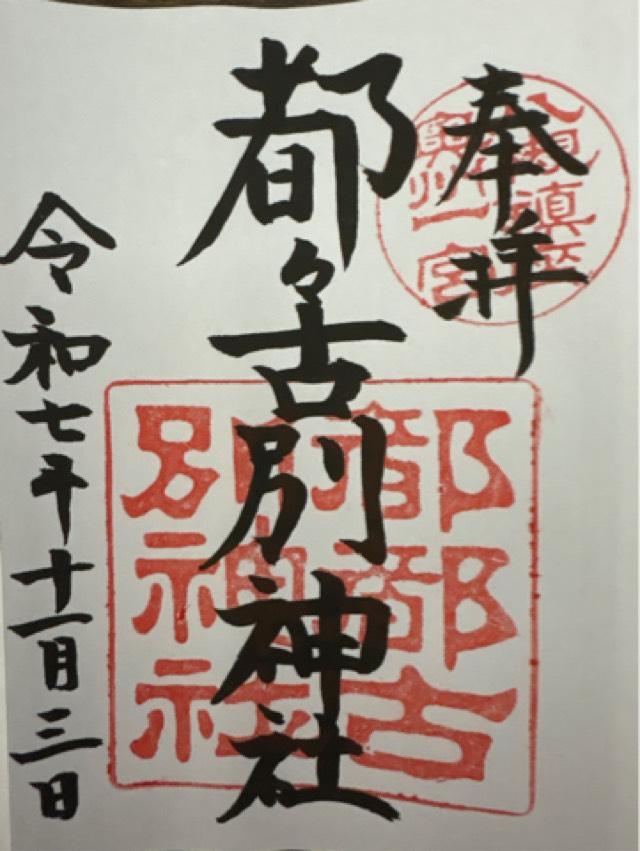 奉拝
都々古別神社
令和七年十一月三日
奥州一宮
都都古
別神社